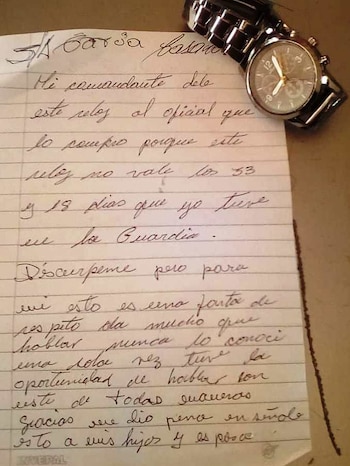 S/1 García Casano
Mi comandante dele
este reloj al oficial que
lo compro porque este
reloj no vale los 33
y 18 dias que yo tuve
en la Guardia.
Discurpeme pero para
mi esto es una farta de
respeto da mucho que
hablar nunca lo conoci
una sola vez tuve la
oportunidad de hablar con
uste de todas maneras
gracias me dio pena enseñale
esto a mis hijos y esposa